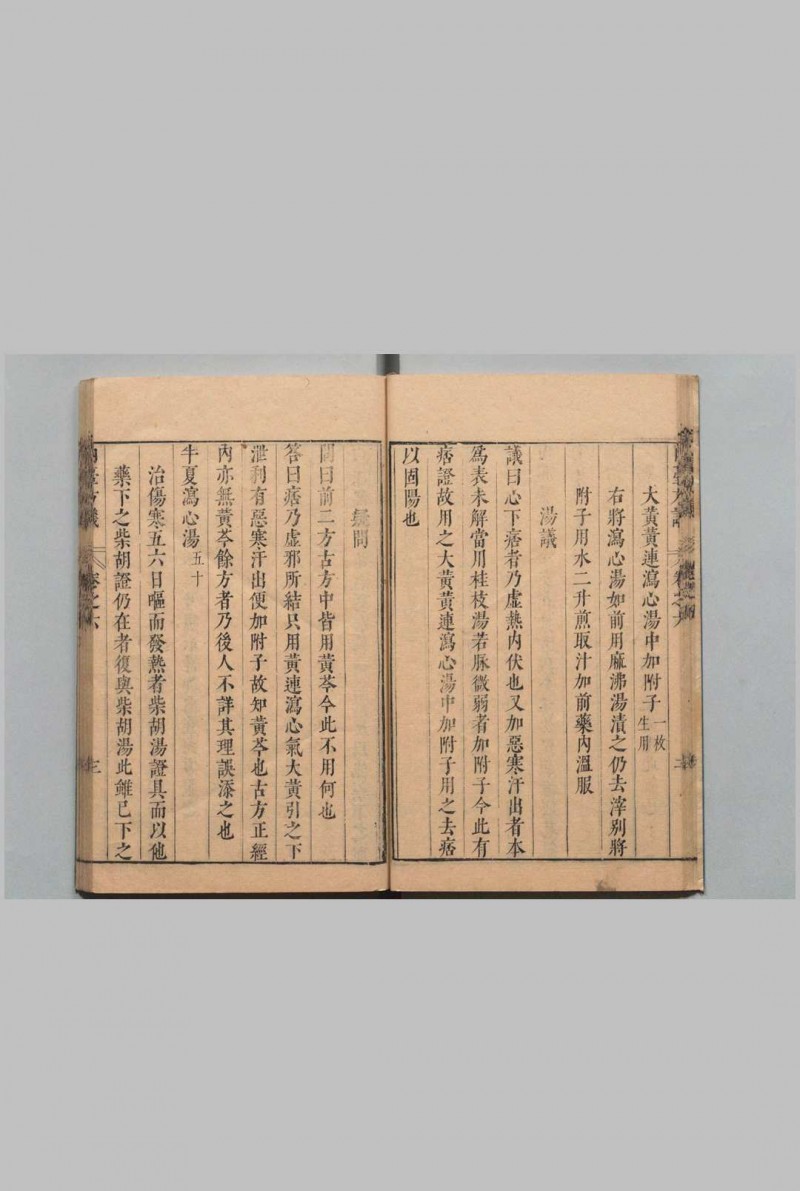 大黃黃連瀉心湯中加附子一枚生用
右將瀉心湯如前用麻沸湯漬之仍去滓別將
附子用水二升煎取汁加前藥內溫服
湯議
議曰心下痞者乃虛熱內伏也又加惡寒汗出者本
爲表未解當用桂枝湯若脉微弱者加附子今此有
痞證故用之大黃黃連瀉心湯中加附子用之去痞
以固陽也
疑問
問曰前二方古方中皆用黃芩今此不用何也
答曰痞乃虛邪所結只用黃連瀉心氣大黃引之下
泄利有惡寒汗出便加附子故知黃芩也古方正經
內亦無黃芩餘方者乃後人不詳其理誤添之也
半夏瀉心湯五十
治傷寒五六日嘔而發熱者柴胡湯證具而以他
藥下之柴胡證仍在者復與柴胡湯此雖已下之
卷之六
三